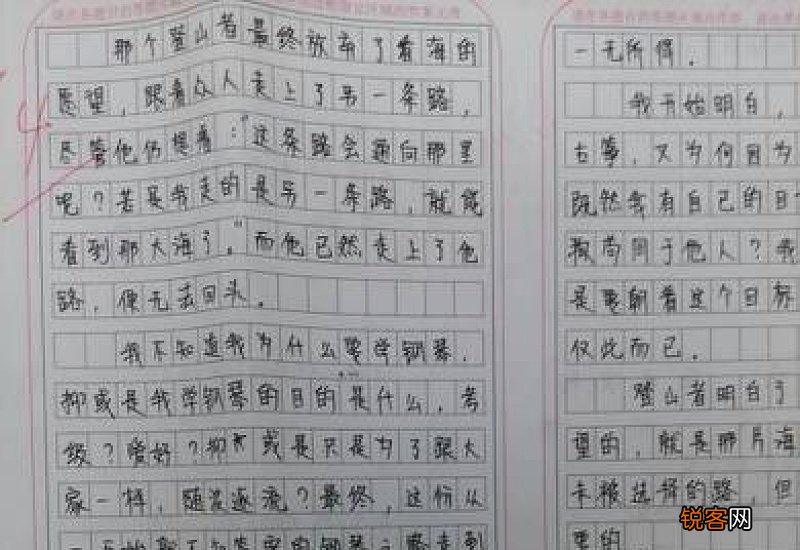 那个登山者最终放弃了看海的
愿望，跟着众人走上了另一条路，
尽管他仍想着："这条路会通向那里
呢？若是我走的是另一条路，就能
看到那大海了。"而他已然走上了他
路，便无法回头。
我不知道我为什么要学钢琴，
抑或是我学钢琴的目的是什么，考
级？爱好？抑或是只是为了跟大
家一样，随波逐流？最终，这份从
一无所得。
我开始明白，
古筝，又为何因为
既然我有自己的目
苟同于他人？我
是要朝着这个目标
仅此而已。
登山者明白了
望的，就是那片海
未被选择的路，但
要的
锐客网